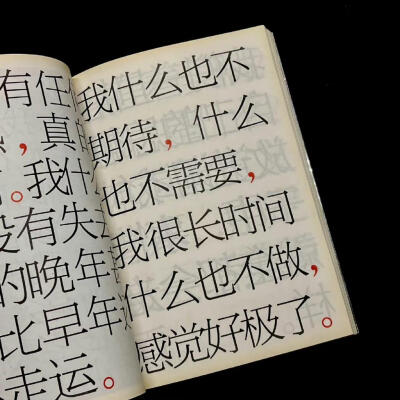 有任
，真
。我什
没有失
的晚年
比早年
走运。
我什么也不
期待，什么
也不需要，
我很长时间
什么也不做，
感觉好极了。